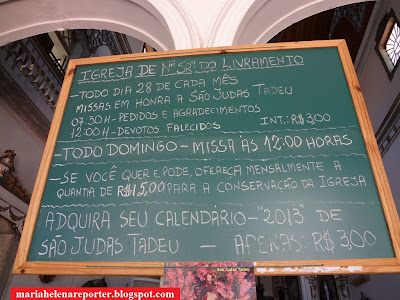 IGREJA DE Nª Sª DO LIVRAMENTO
- TODO DIA 28 DE CADA MÊS
MISSAS EM HONRA A SÃO JUDAS TADEU
07:30 H - PEDIDOS E AGRADECIMENTOS
12:00 H - DEVOTOS FALECIDOS INT.: R$ 3,00
- TODO DOMINGO - MISSA ÀS 12:00 HORAS
- SE VOCÊ QUER E PODE, OFEREÇA MENSALMENTE A
QUANTIA DE R$ 15,00 PARA A CONSERVAÇÃO DA IGREJA
ADQUIRA SEU CALENDÁRIO - "2013" DE
SÃO JUDAS TADEU - APENAS: R$ 3,00
São Judas Tadeu
mariahelenareporter.blogspot.com